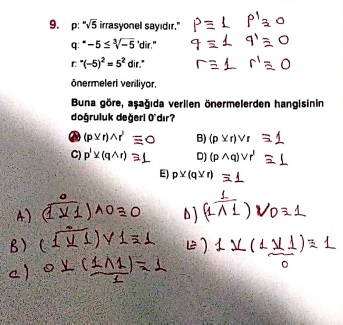 9. p: "√5 irrasyonel sayıdır." p≡1 p'≡0
q: "−5 ≤ ∛−5 'dir." q≡1 q'≡0
r: "(−5)² = 5² dir." r≡1 r'≡0
önermeleri veriliyor.
Buna göre, aşağıda verilen önermelerden hangisinin
doğruluk değeri 0'dır?
A) (p ⊻ r) ∧ r' ≡0 B) (p ⊻ r) ∨ r ≡1
C) p' ⊻ (q ∧ r) ≡1 D) (p ∧ q) ∨ r' ≡1
E) p ⊻ (q ⊻ r) ≡1
A) (1 ⊻ 1) ∧ 0 ≡ 0 D) (1 ∧ 1) ∨ 0 ≡ 1
B) (1 ⊻ 1) ∨ 1 ≡ 1 E) 1 ⊻ (1 ⊻ 1) ≡ 1
C) 0 ⊻ (1 ∧ 1) ≡ 1